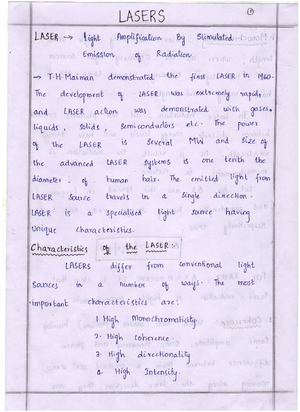 LASERS
LASER → Light Amplification By Stimulated
Emission of Radiation.
→ T.H. Maiman demonstrated the first LASER in 1960.
The development of LASER was extremely rapid,
and LASER action was demonstrated with gases,
liquids, solids, semiconductors etc. The power
of the LASER is several MW and size of
the advanced LASER systems is one tenth the
diameter of human hair. The emitted light from
LASER source travels in a single direction.
LASER is a specialised light source having
unique characteristics.
Characteristics of the LASER:-
LASERS differ from conventional light
sources in a number of ways. The most
important characteristics are:
1. High Monochromaticity
2. High Coherence
3. High directionality
4. High Intensity.